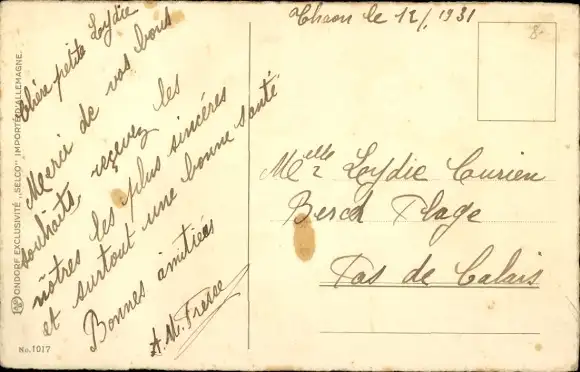 Thaon le 12/1 1931
Chère petite Lydie
Merci de vos bons
souhaits, reçevez les
nôtres les plus sincères
et surtout une bonne santé
Bonnes amitiées
A. M.
Melle Lydie Curien
Berck Plage
Pas de Calais
ONDORF EXCLUSIVITÉ „SELCO" IMPORTÉ D'ALLEMAGNE.
No. 1017